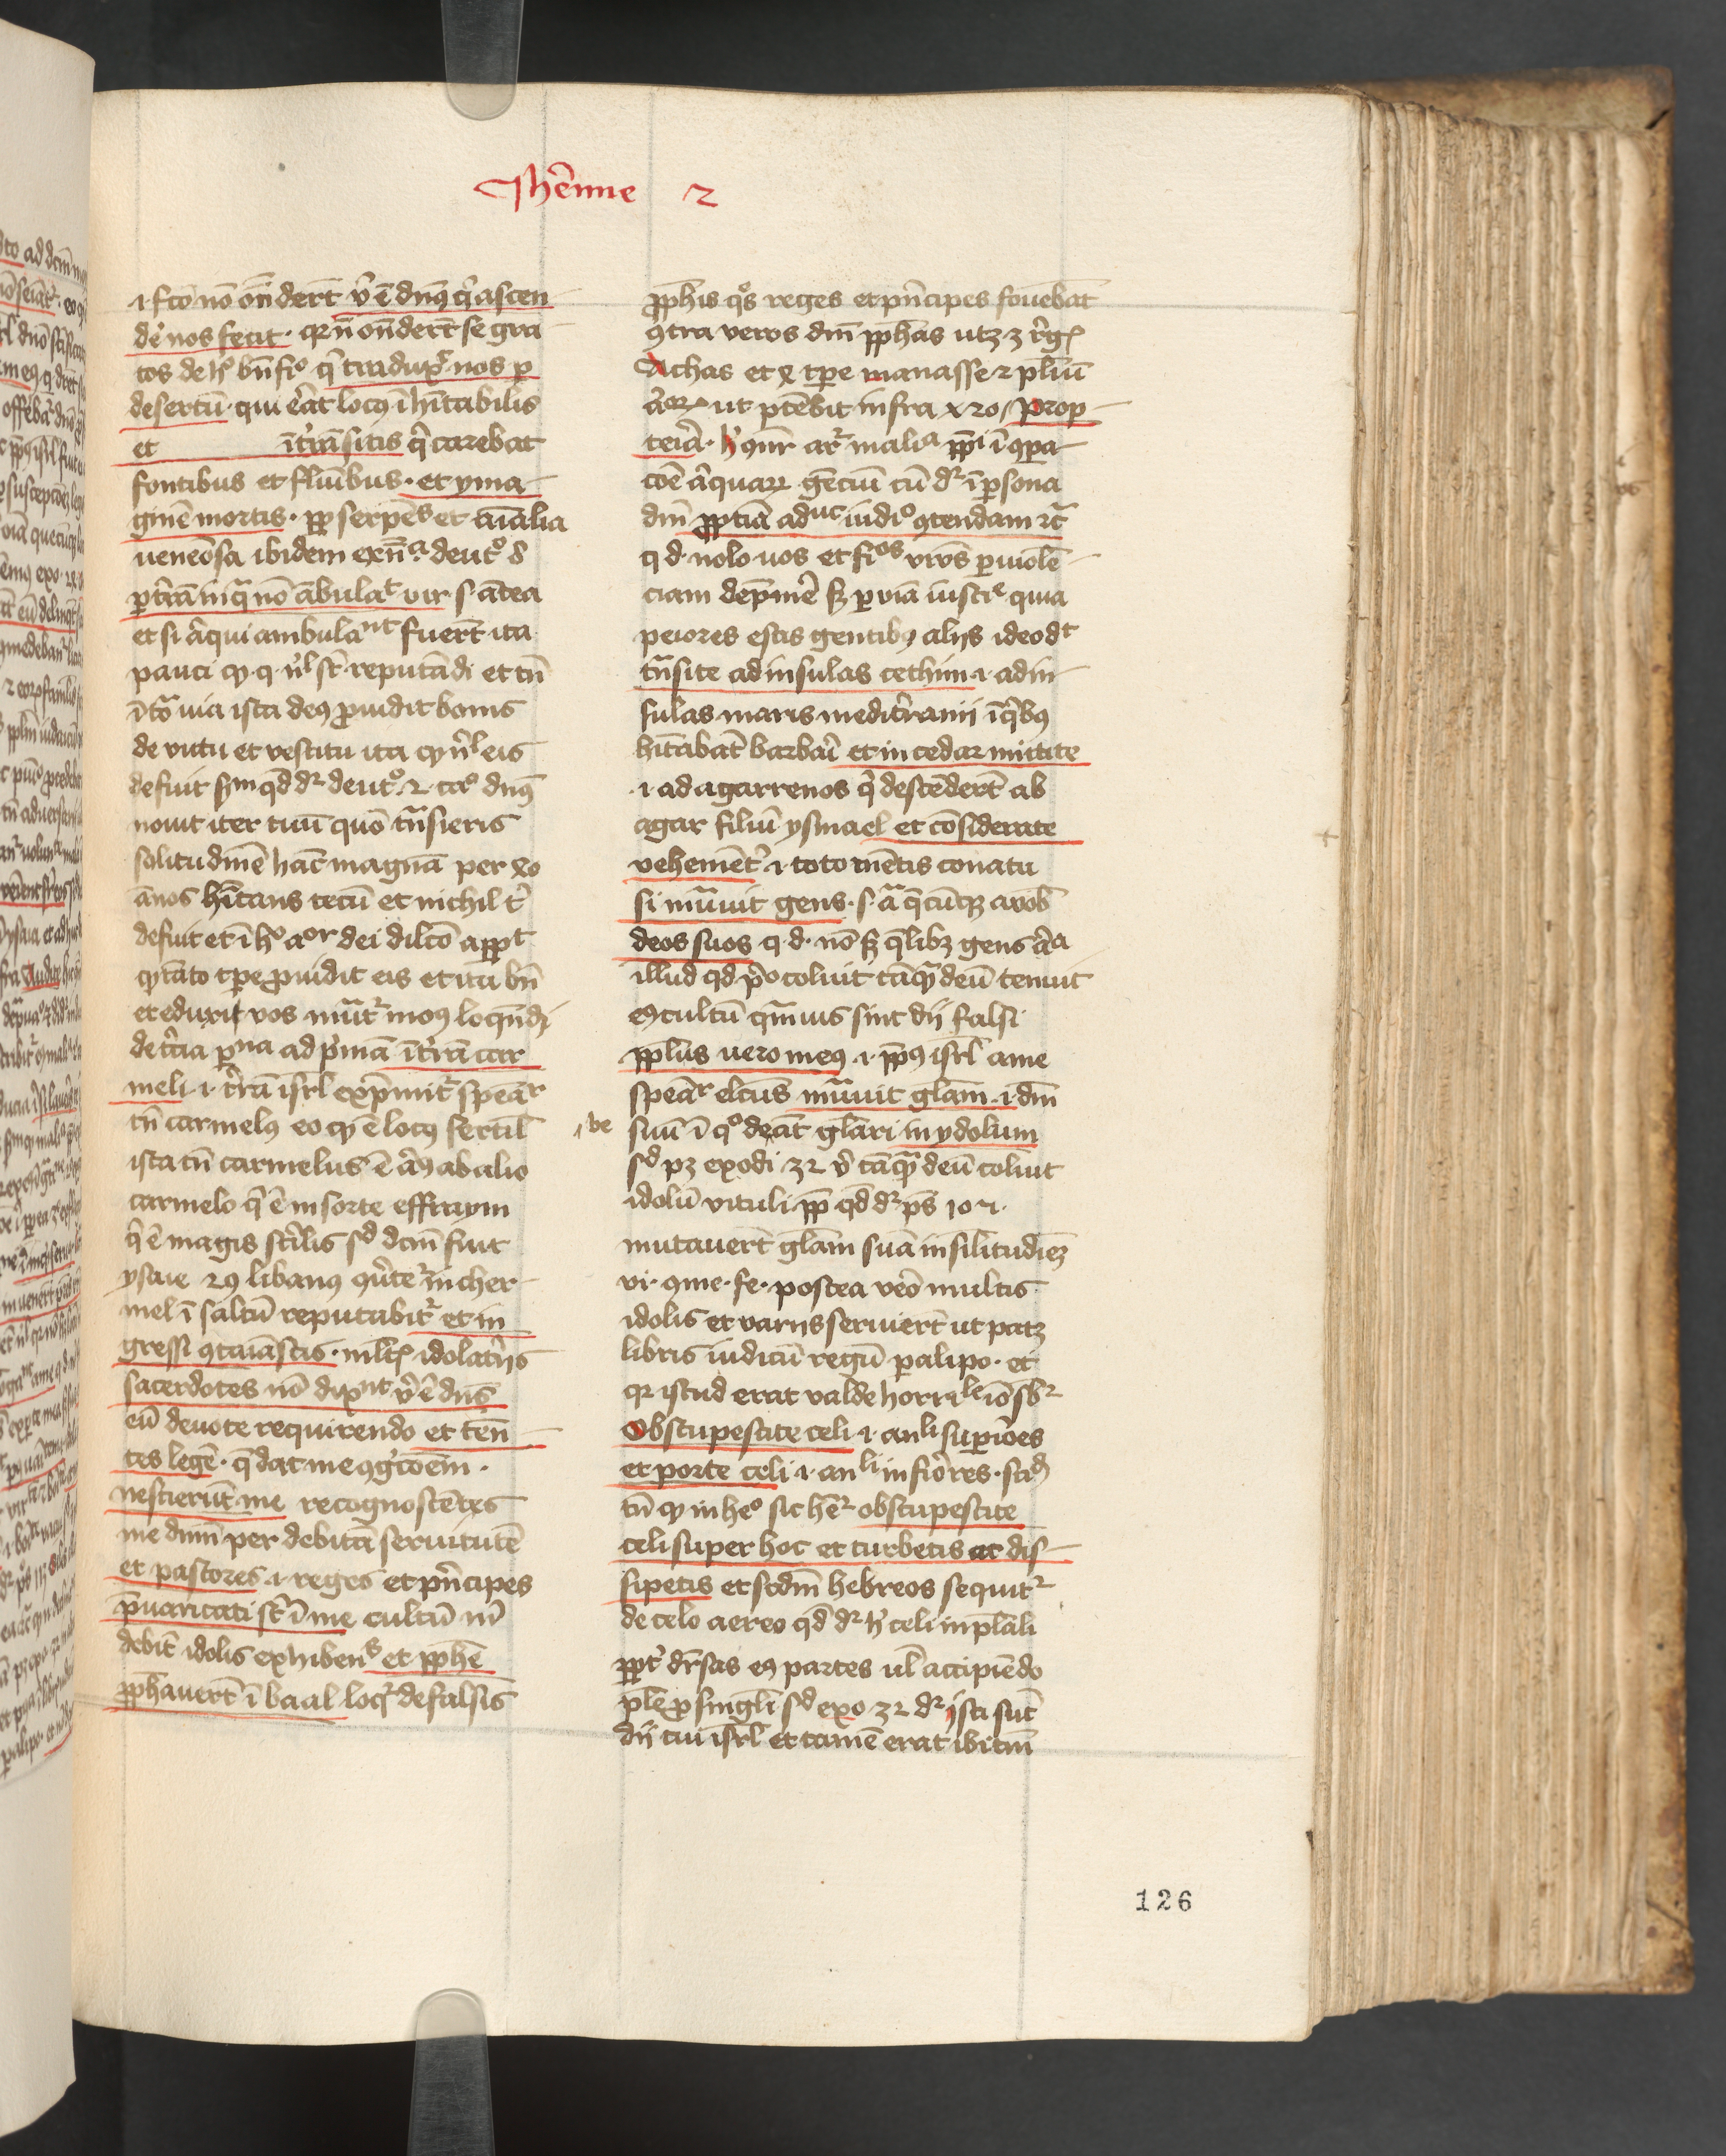 Jherēnie 2
.i. fco nō onderēt vͥ ē dnꝰ qͥ ascen
deͬ nos fecit · qꝛ nͦ onderēt se gra
tos de hͦ bn̄fiͦ qͥ traduxͭ nos ꝑ
desertū · qui eͬat locꝰ ī hītabilis
et ītrāsitis qͥ carebat
fontibus et fluūibus · et yma
ginē mortis · ꝓp serpēͤs et aīalia
uenēosa ibidem exn̄cͣ deutͦ 8
ꝑ trāā in qͣ nō ābulaͭ vir s· ātea
et si aͣqui ambulaⁿᵗ fuerēt ita
pauci ꝙ q nͥl sūt reputādi et tn̄
ī tͣa uia ista deꝰ ꝓuidit bonis
de victu et vestitu ita ꝙ nͥl eis
defuit scᵈm qd̄ dꝛ deutͦ 2 caͦ dnꝰ
nouit iter tuū quō tn̄sieris
solitudinē hāc magnā per xlo
ānos hītans tecū et nichil tͥ
defuit et ī hͦ aoͬ dei dilcō appͭ
ꝙ tāto tꝑe ꝓuidit eis et ita bn̄
et eduxit vos mutͬ modꝰ loqn̄di
de tͨia ꝑsᵒⁿᵃ ad pͥmā ī tͬrā car
meli .i. tͬrā isrl̄ exp̄mitͬ speāͬ
tn̄ carmelꝰ eo ꝙ ē locꝰ fertil̄
ista tn̄ carmelus ē aͣlꝰ ab alio
carmelo qͥ ē in sorte effraym
qͥ ē magis stͬilis sᵈ dcm̄ fuit
ysaie 29 libanꝰ ꝯuͬtetͬ in cher
mel ī saltū reputabitͬ et in
gressi ꝯtaīastis · mltꝭ idolatͬiis
sacerdotes nō dixͤrⁿᵗ vͥ ē dn̄s
eū deuote requirendo et tēn
tes legē · q̄ dat me ꝯgͥtōēm ·
nescierūt me recognoscētes
me dnm̄ per debitā seruitutē
et pastores .i. reges et pn̄cipes
p̄uaricati sūt ī me cultū m͂
debit̄ idolis exhibenᵗˢ et ꝓphē
ꝓphauerēt ī baal loqͬ de falsis
ꝓphis qͦs reges et pn̄cipes fouebat
ꝯtra veros dni̅ ꝓphas utꝫ 3 rͤgꝭ
Achas et ꝗ tꝑe manasse 2 pliū
aͣoꝝ ut ptēbit infra xxo / prop
tea · hͥ ꝯnr arꝛ maliᵃ ppͥ ī ꝯpa
cōē aͣquaꝝ gēciū cū dꝛ ī ꝑsona
dni̅ ꝓptiā adᵘᶜ iudiᵒ ꝯtendam ꝛcͣ
q d· nolo uos et fiᵒˢ vrōs ꝑ uiolē
ciam depmēͬ sꝫ ꝑ viā iustiᵉ quia
peiores estis gentibꝰ alijs ideo dᵗ
tn̄site ad insulas cethim .i. ad in
sulas maris meditͬranii ī qͥbꝰ
hītabāt barbaͬi et in cedar mittite
.i. ad agarrenos qͥ descēderēt ab
agar filiū ysmael et cōsiderate
vehemētͬ .i. toto mētis conatu
si mutauit gens · s· aͣ q̄cūqꝫ arob̄
deos suos q· d· nō sꝫ q̄libꝫ gens aͣa
illud qd pͬo coluit tāqͣ deū tenuit
eꝰ cultū qͣmuis sint dij falsi
ꝓplus uero meꝰ .i. ppꝰ isrl̄ a me
speāͬ elcus mͣtauit gl̄am .i. dm̄
be
suū ī qͦ deāt gl̄ari in ydolum
sᵈ pꝫ exodi 32 vͥ tāqͣ deū coluit
idolū vituli ꝓp qd̄ dꝛ ps̄ 107.
mutauerēt gl̄am suā in silitudiēꝫ
vi· ꝯme· fe· postea veͦo multis
idolis et variis seruierēt ut patꝫ
libris iudicū regū paralipo· et
qꝛ istud erat valde horriˡᵉ iō sbꝛ
Obstupescite celi .i. anˡⁱ suꝑiōes
et porte celi .i. anˡⁱ infiōres · sciᵈ
tn̄ ꝙ in heᵒ sic hēꝛ obstupescite
celi super hoc et turbetis et dis
sipetis et scdm̄ hebreos sequitͬ
de celo aereo qd̄ dꝛ hͥ celi in pl̄ali
ꝓptͬ dr̄sas eꝰ partes ul̄ accipiēdo
pl̄e ꝓ singl̄i sᵈ exo 32 dꝛ isti sūt
dij tui isrl̄ et tamē erat ibi tm̄
126